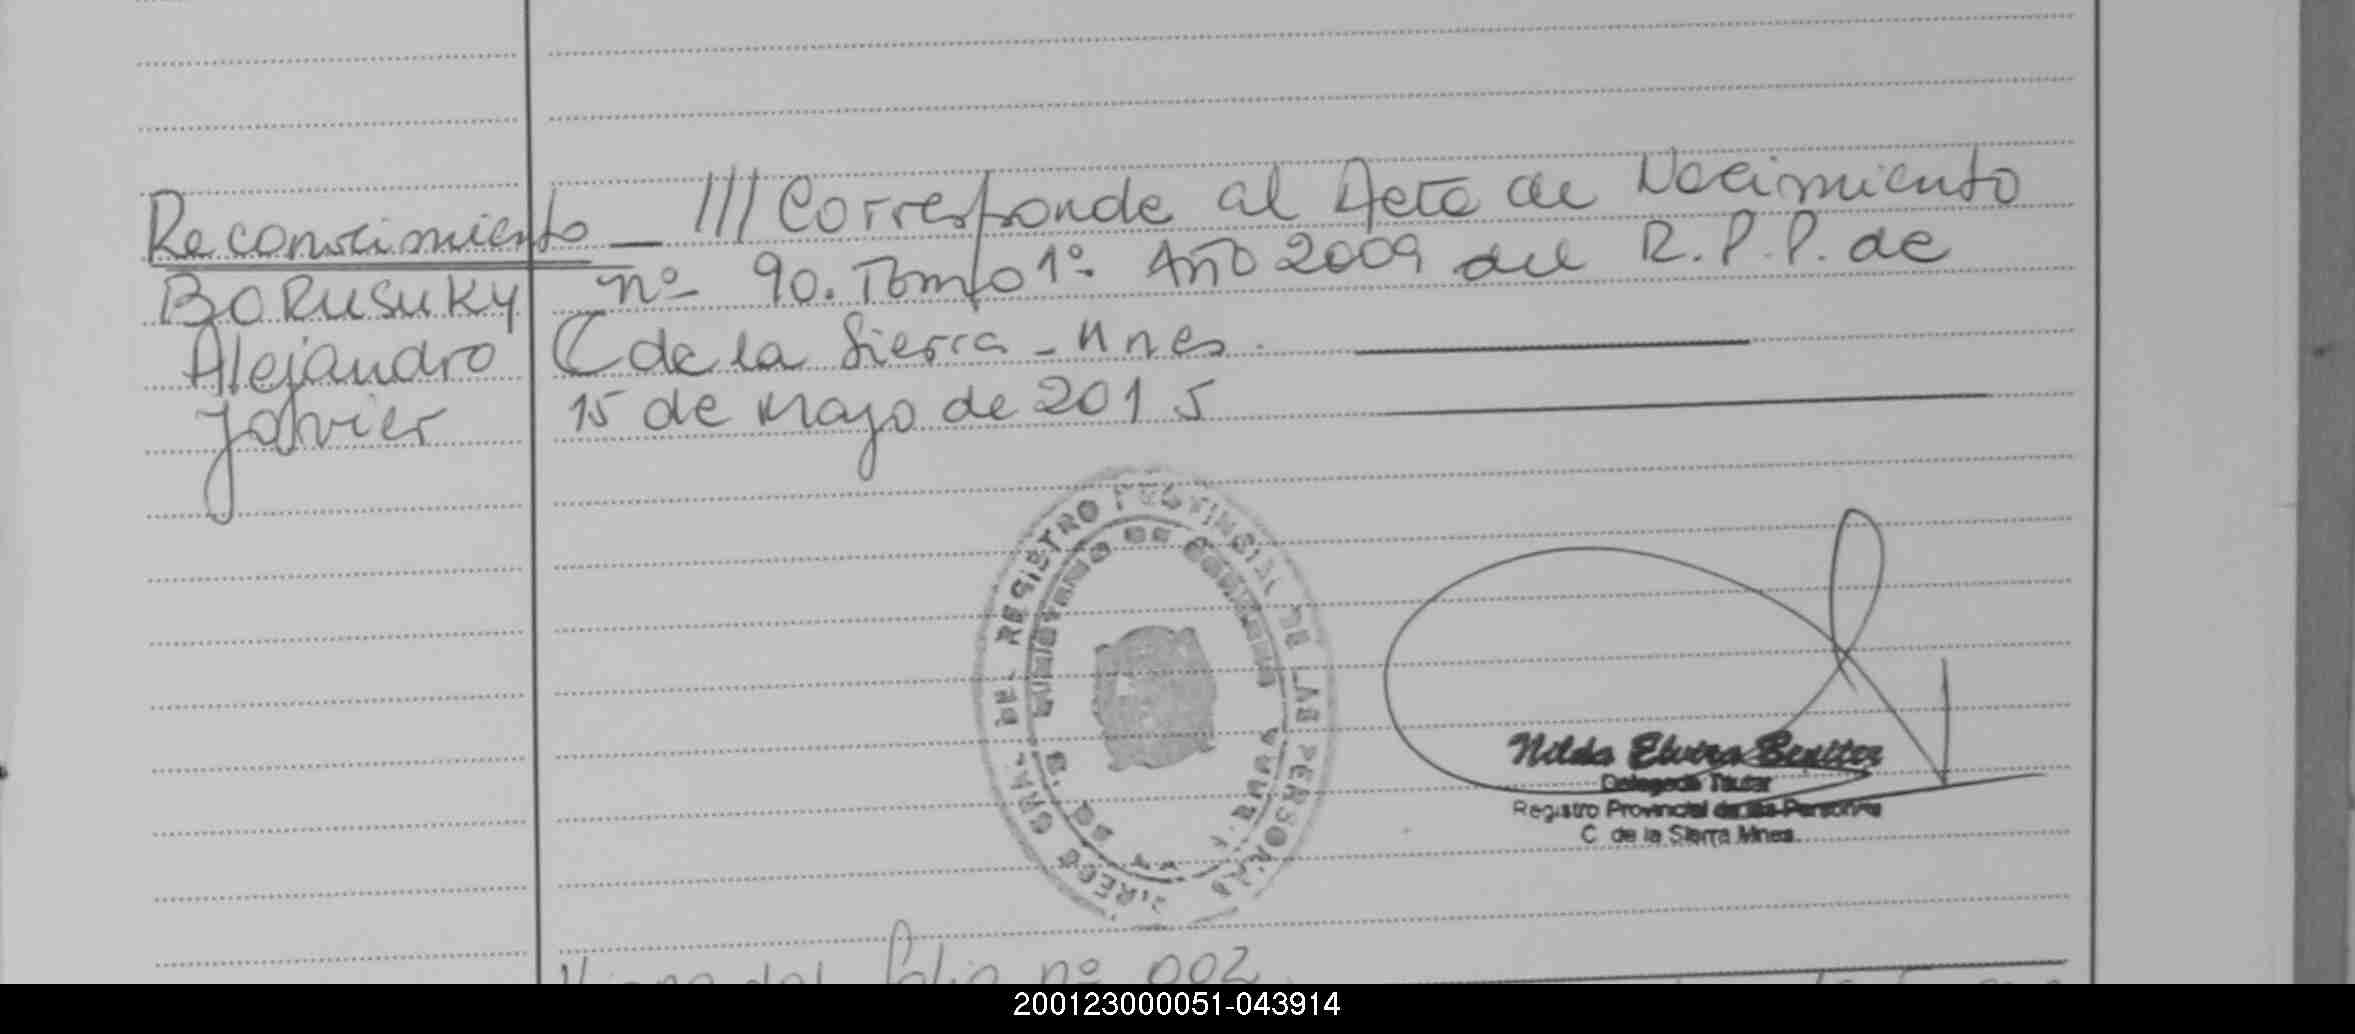 Reconocimiento — /// Corresponde al Acta de Nacimiento
BORUSUKY nº 90. Tomo 1º. Año 2009 del R.P.P. de
Alejandro C de la Sierra - Mnes.
Javier 15 de Mayo de 2015
REGISTRO PROVINCIAL DE LAS PERSONAS
MINISTERIO DE GOBIERNO
Nilda Elvira Benitez
Delegada Titular
Registro Provincial de las Personas
C. de la Sierra Mnes.
Viene del folio nº 002
200123000051-043914